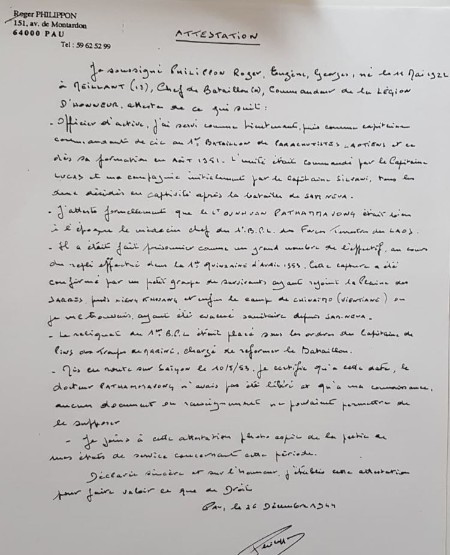 Roger PHILIPPON
151, av. de Montardon
64000 PAU
Tel : 59 62 52 99
ATTESTATION
Je soussigné PHILIPPON Roger, Eugène, Georges, né le 11 Mai 1922
à MEILLANT (18), Chef de Bataillon (), Commandeur de la LÉGION
D'HONNEUR, atteste de ce qui suit :
- Officier d'active, j'ai servi comme lieutenant, puis comme capitaine
commandant de Cie au 1er BATAILLON de PARACHUTISTES LAOTIENS et ce
dès sa formation en Août 1951. L'unité était commandé par le Capitaine
LUCAS et ma compagnie initialement par le Capitaine, tous les
deux décédés en captivité après la bataille de SAM NEUA.
- J'atteste formellement que le PATHAMMAVONG était bien
à l'époque le médecin chef du 1er B.P.L. des Forces du LAOS.
- Il a était fait prisonnier comme un grand nombre de l'effectif, au cours
du repli effectué dans la 1ère Quinzaine d'Avril 1953. Cette capture a été
confirmé par un petit groupe de survivants ayant rejoint la Plaine des
JARRES, puis XIENG KHUANG et enfin le camp de CHINAIMO (VIENTIANE) où
je me trouvais, ayant été évacué sanitaire depuis SAM NEUA.
- Le reliquat du 1er B.P.L. était placé sous les ordres du Capitaine de
PINS des Troupes de MARINE, chargé de reformer le Bataillon.
- Mis en route sur Saïgon le 10/5/53, je certifie qu'à cette date, le
docteur PATHAMMAVONG n'avais pas été libéré et qu'à ma connaissance,
aucun document ou renseignement ne pouvaient permettre de
le supposer
- Je joins à cette attestation photocopie de la partie de
mes états de service concernant cette période.
Déclarée sincère et sur l'honneur, j'établis cette attestation
pour faire valoir ce que de Droit
PAU, le 26 Décembre